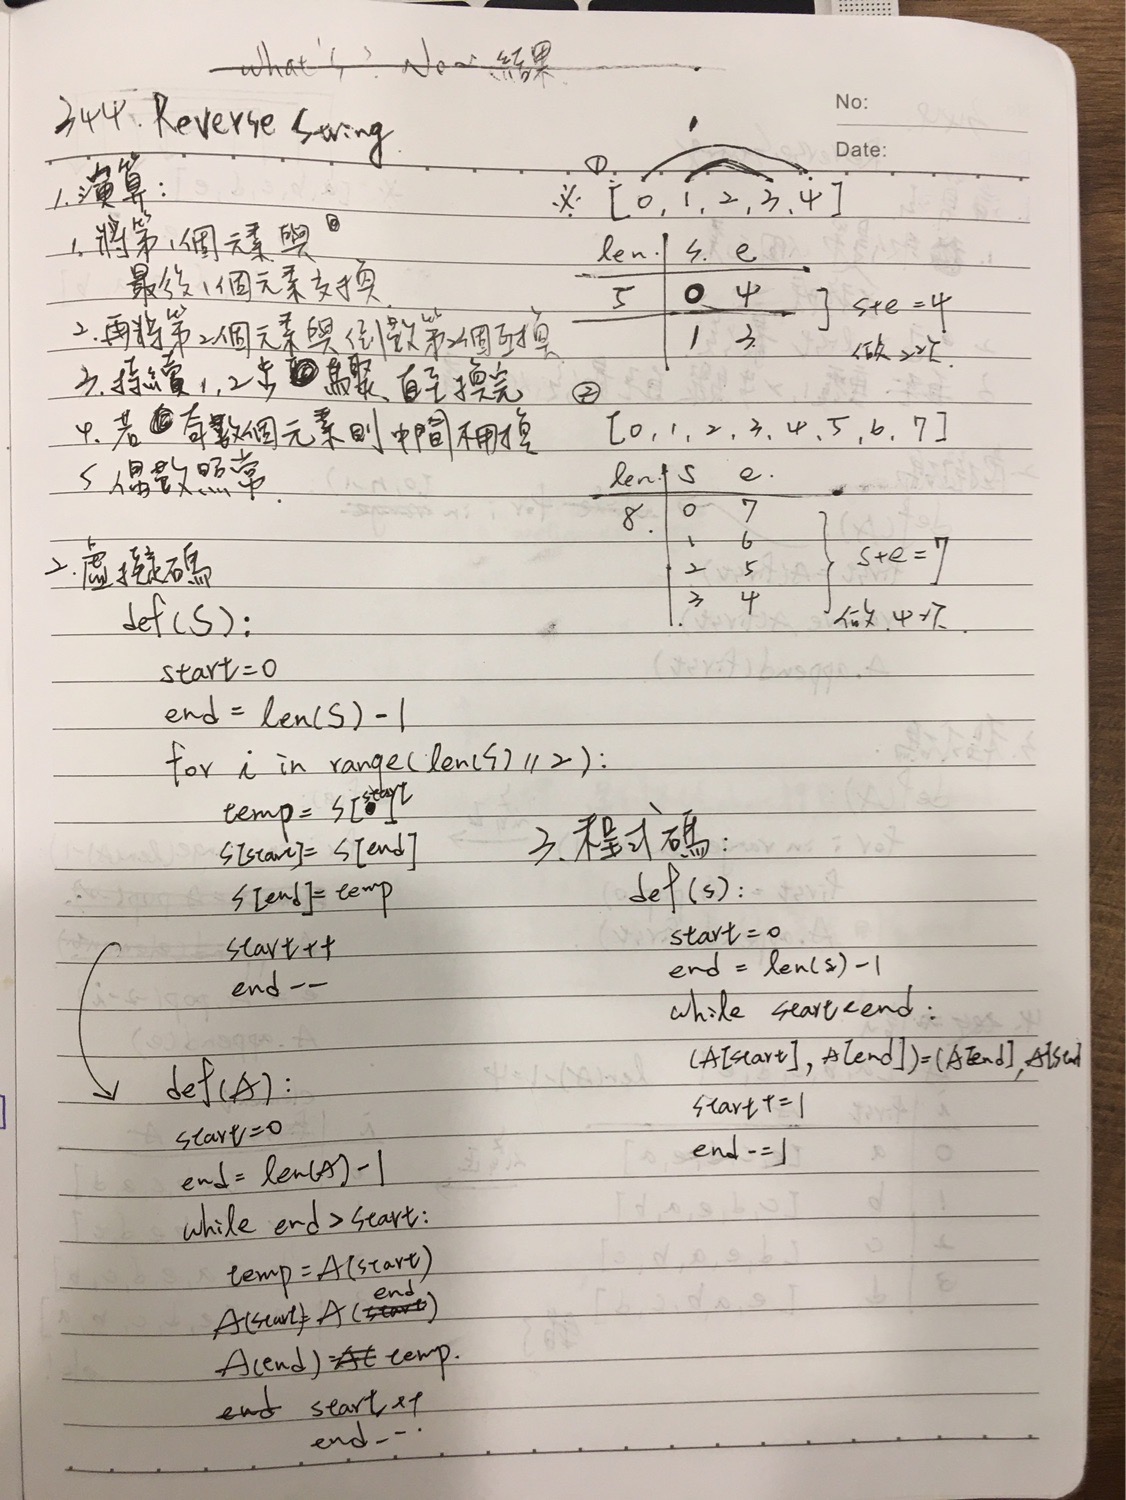 344. Reverse String
No:
Date:
1. 演算:
1. 將第1個元素與
最後1個元素交換
2. 再將第2個元素與倒數第2個互換
3. 持續1,2步驟,直至換完
4. 若奇數個元素則中間不用換
5 偶數照常.
① ※ [0, 1, 2, 3, 4]
len. s. e
5 0 4
1 3
s+e=4
做2次
②
[0, 1, 2, 3, 4, 5, 6, 7]
len. s e.
8. 0 7
1 6
2 5
3 4
s+e=7
做4次
2. 虛擬碼
def(S):
start=0
end = len(S)-1
for i in range(len(S)//2):
temp= s[start]
s[start]= s[end]
s[end]= temp
start++
end--
def(A):
start=0
end= len(A)-1
while end>start:
temp=A(start)
A(start)= A(end)
A(end)= temp.
start++
end--
3. 程式碼:
def(s):
start=0
end = len(s)-1
while start<end:
(A[start], A[end])=(A[end], A[start
start+=1
end-=1